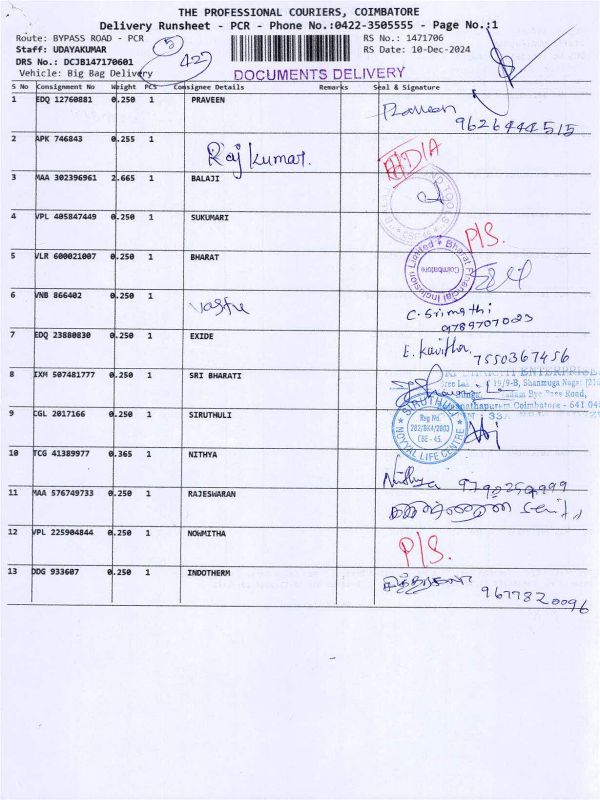 THE PROFESSIONAL COURIERS, COIMBATORE
Delivery Runsheet - PCR - Phone No.:0422-3505555 - Page No.:1
Route: BYPASS ROAD - PCR RS No.: 1471706
Staff: UDAYAKUMAR RS Date: 10-Dec-2024
DRS No.: DCJB147170601
Vehicle: Big Bag Delivery
5
422
DOCUMENTS DELIVERY
S No Consignment No Weight PCS Consignee Details Remarks Seal & Signature
1 EDQ 12760881 0.250 1 PRAVEEN Praveen
9626444515
2 APK 746843 0.255 1
Raj kumar.
3 MAA 302396961 2.665 1 BALAJI
4 VPL 405847449 0.250 1 SUKUMARI P/S.
5 VLR 600021007 0.250 1 BHARAT Bharat Financial Inclusion Limited Coimbatore
6 VNB 866402 0.250 1 C. Srimathi
9789707023
7 EDQ 23880830 0.250 1 EXIDE E. Kavitha 7550367456
8 IXM 507481777 0.250 1 SRI BHARATI
9 CGL 2017166 0.250 1 SIRUTHULI SIRUTHULI Reg No. 282/BK4/2003 CBE - 45. NOYYAL LIFE CENTRE
10 TCG 41389977 0.365 1 NITHYA Nithya
11 MAA 576749733 0.250 1 RAJESWARAN
12 VPL 225904844 0.250 1 NOWMITHA P/S.
13 DDG 933607 0.250 1 INDOTHERM
9677820096